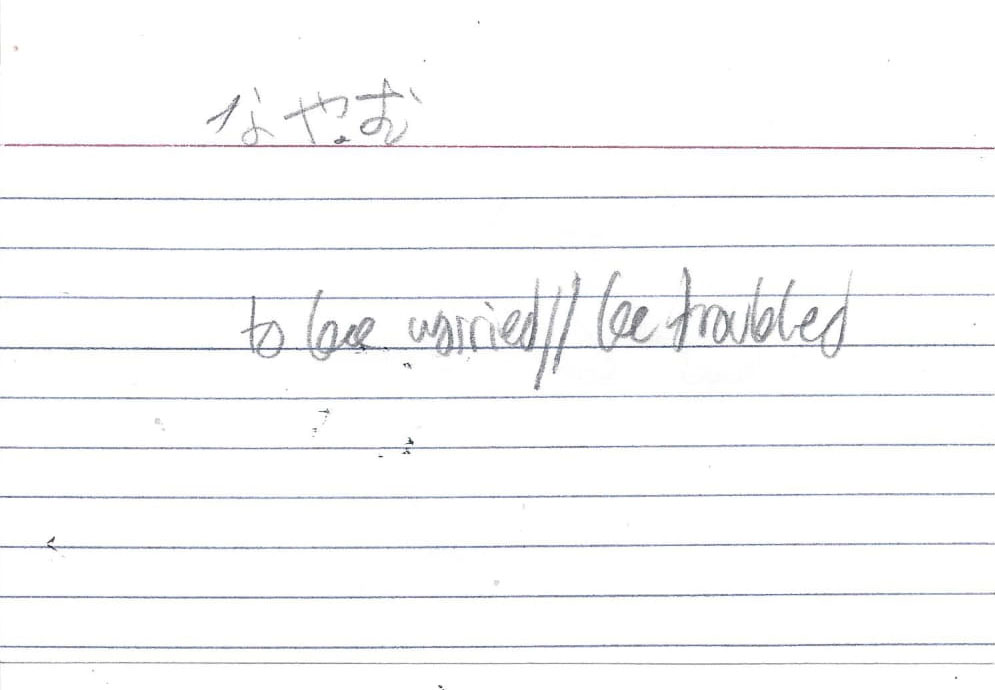 なやむ
to be worried // be troubled